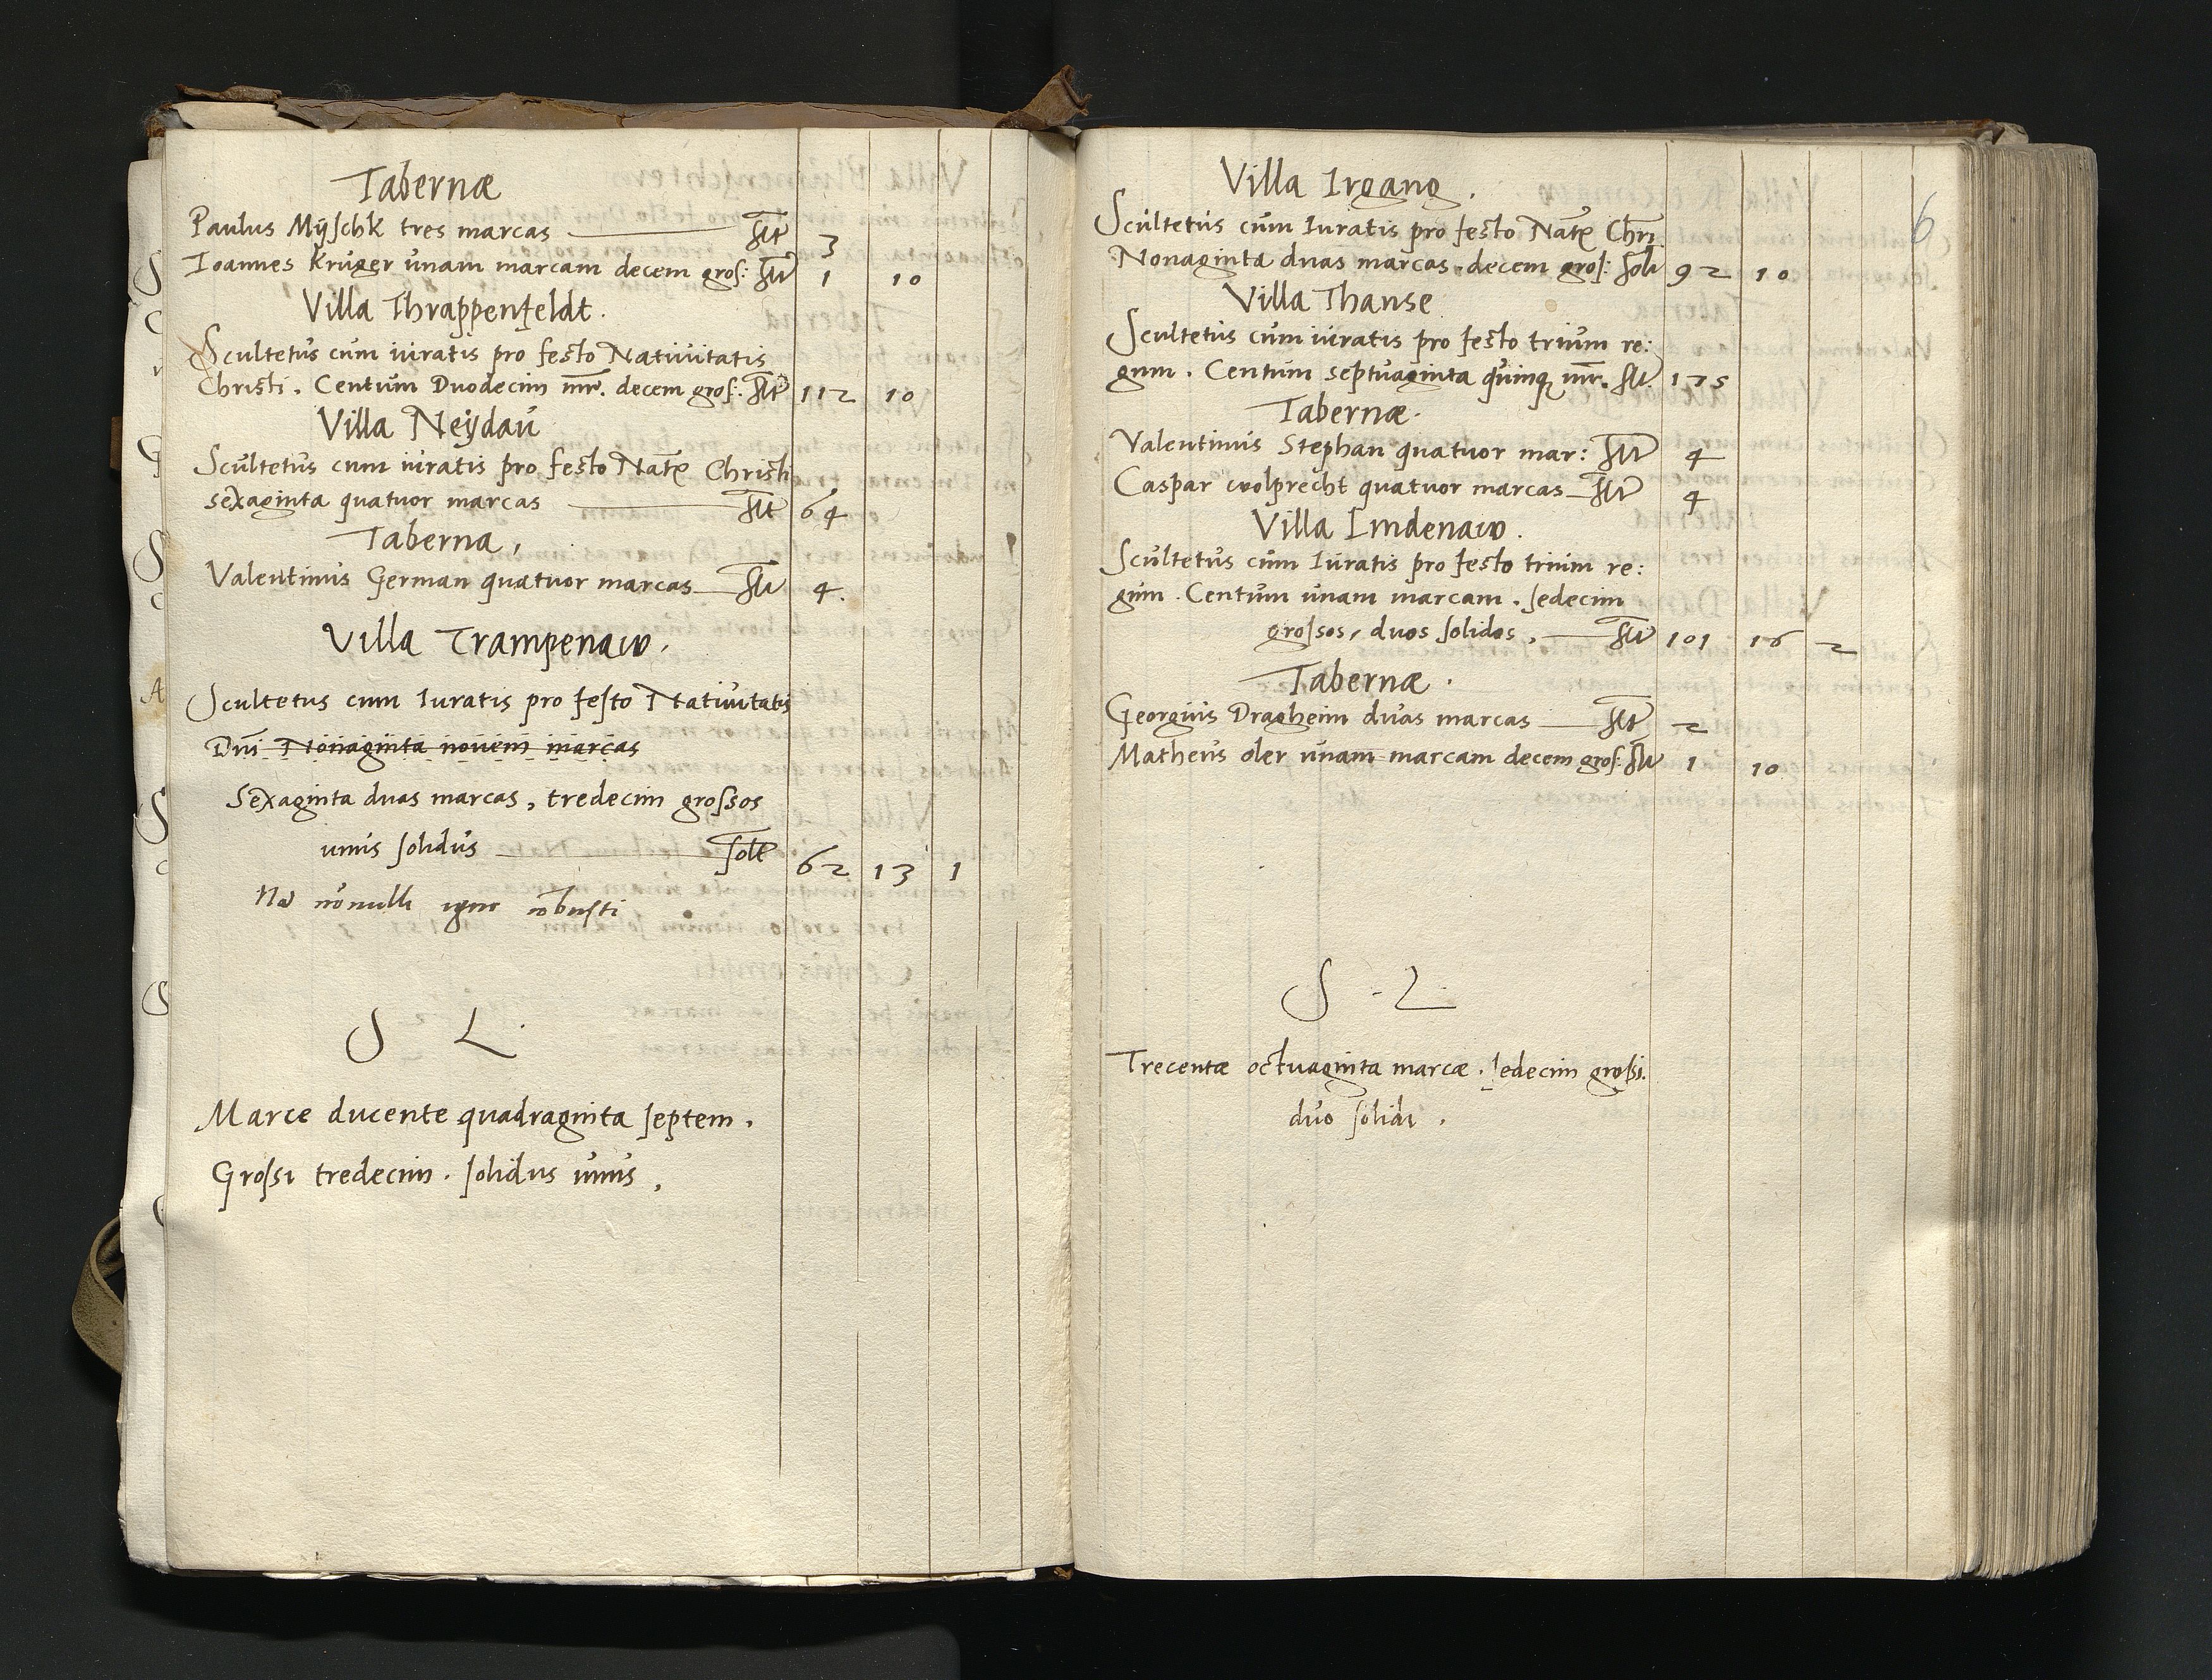 Tabernæ
Paulus Mÿschk tres marcas — slt 3
Ioannes Kruger unam marcam decem gros: slt 1 10
Villa Thrappenfeldt.
Scultetus cum iuratis pro festo Natiuitatis
Christi. Centum Duodecim mr. decem gros: slt 112 10
Villa Neÿdau
Scultetus cum iuratis pro festo Nats Christi
sexaginta quatuor marcas — slt 64
Taberna,
Valentinus German quatuor marcas — slt 4.
Villa Trampenaw.
Scultetus cum Iuratis pro festo Natiuitatis
Dni Nonaginta nouem marcas
Sexaginta duas marcas, tredecim grossos
unus solidus — solt 62 13 1
nonulli igne cobusti
S L.
Marce ducente quadraginta septem.
Grossi tredecim. solidus unus,
6
Villa Irgang.
Scultetus cum Iuratis pro festo Nats Chri
Nonaginta duas marcas. decem gros: solt 92 10
Villa Thanse
Scultetus cum iuratis pro festo trium re:
gum. Centum septuaginta quinq mr. slt. 175
Tabernæ.
Valentinus Stephan quatuor mar: slt 4
Caspar wolprecht quatuor marcas — slt 4
Villa Lindenaw.
Scultetus cum Iuratis pro festo trium re:
gum. Centum unam marcam. sedecim
grossos, duos solidos. — slt 101 16 2
Tabernæ.
Georgius Dragheim duas marcas — slt 2
Matheus oler unam marcam decem gros: slt 1 10
S - L
Trecentæ octuaginta marcæ. sedecim grossi.
duo solidi.